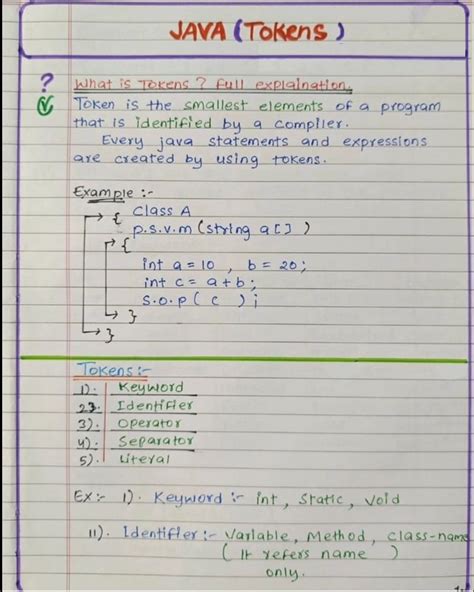 JAVA (Tokens)
? What is Tokens? Full explaination.
Token is the smallest elements of a program
that is identified by a compiler.
Every java statements and expressions
are created by using tokens.
Example :-
{ class A
p.s.v.m (string a[] )
{
int a = 10 , b = 20;
int c = a + b;
S.O.P ( c );
}
}
Tokens:-
1). Keyword
2). Identifier
3). Operator
4). Separator
5). Literal
Ex:- 1). Keyword :- int, static, void
11). Identifier :- Variable, Method, class-name
( It refers name )
only.